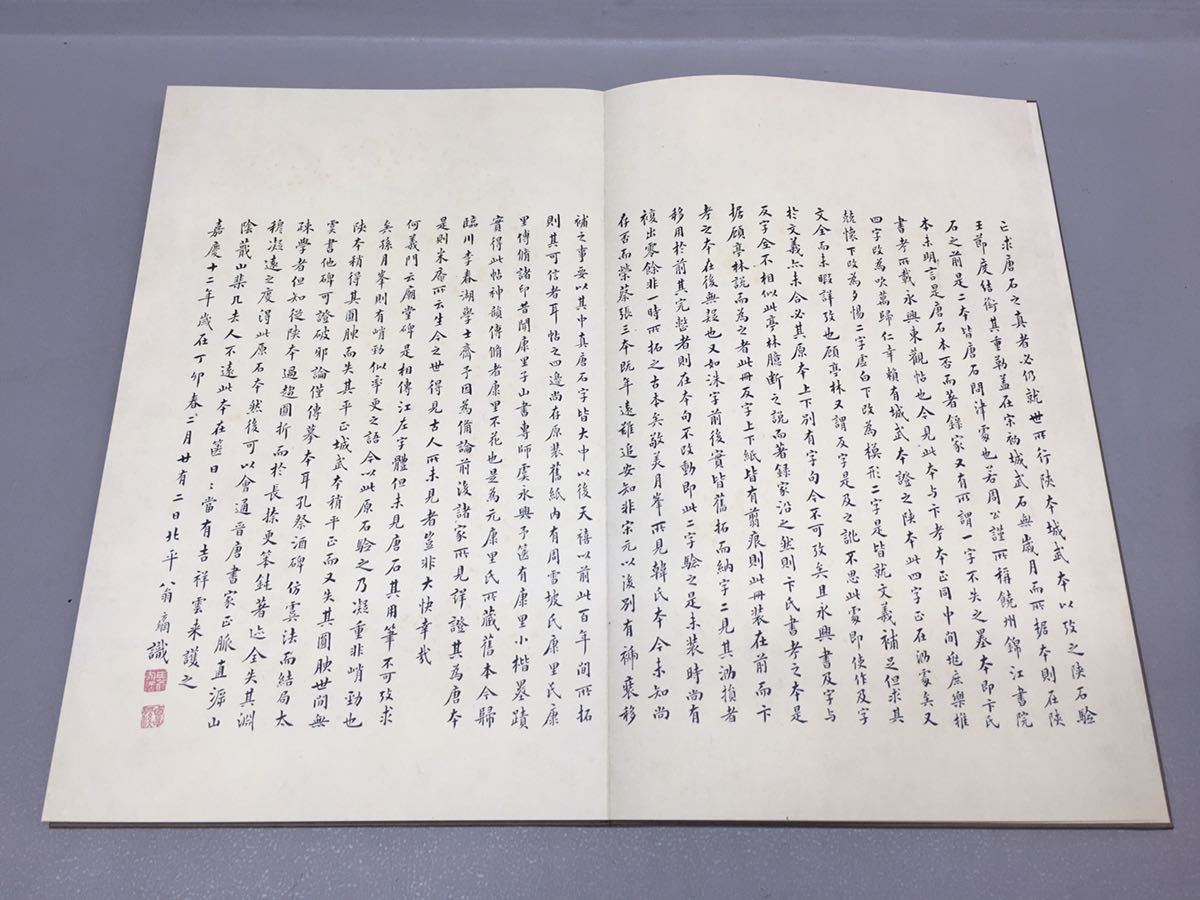 亡求唐石之真者必仍就世所行陝本城武本以攷之陝石驗
王節度結銜其重勒蓋在宋初城武石無歲月而所据本則在陝
石之前是二本皆唐石問津處也若周公謹所稱饒州錦江書院
本未明言是唐石本否而著錄家又有所謂一字不失之墨本即卞氏
書考所載永興東觀帖也今見此本与卞考本正同中間虺庶樂推
四字改為吹萬歸仁幸賴有城武本證之陝本此四字正在泐處矣又
兢懷下改為夕惕二字虛白下改為模形二字是皆就文義補足但求其
文全而未暇詳攷也顧亭林又謂反字是及之訛不思此處即使作及字
於文義亦未合必其原本上下別有字句今不可攷矣且永興書及字与
反字全不相似此亭林臆断之說而著錄家沿之然則卞氏書考之本是
据顧亭林說而為之者此冊反字上下紙皆有剪痕則此冊装在前而卞
考之本在後無疑也又如洙字前後實皆舊拓而納字二見其泐損者
移用於前其完整者則在本句不改動即此二字驗之是未装時尚有
複出零餘非一時所拓之古本矣敬美月峯所見韓氏本今未知尚
存否而榮蔡張三本旣年遠難追安知非宋元以後別有裨裹移
補之事要以其中真唐石字皆大中以後天禧以前此百年間所拓
則其可信者耳帖之四邊尚存原装舊紙內有周雪坡氏康里氏康
里傅脩諸印昔聞康里子山書專師虞永興予篋有康里小楷墨蹟
實得此帖神韻傅脩者康里不花也是為元康里氏所藏舊本今歸
臨川李春湖學士齋予因為備論前後諸家所見詳證其為唐本
是則米庵所云生今之世得見古人所未見者豈非大快幸哉
何義門云廟堂碑是相傳江左字體但未見唐石其用筆不可攷求
矣孫月峯則有峭勁似率更之語今以此原石驗之乃凝重非峭勁也
陝本稍得其圓腴而失其平正城武本稍平正而又失其圓腴世間無
虞書他碑可證破邪論僅傳摹本耳孔祭酒碑仿虞法而結局太
疎學者但知從陝本過趨圓折而於長捺更笨鈍著迹全失其淵
穆凝遠之度得此原石本然後可以會通晉唐書家正脈直溯山
陰蕺山棐几去人不遠此本在篋日〻當有吉祥雲來護之
嘉慶十二年歲在丁卯春二月廿有二日北平翁方綱識